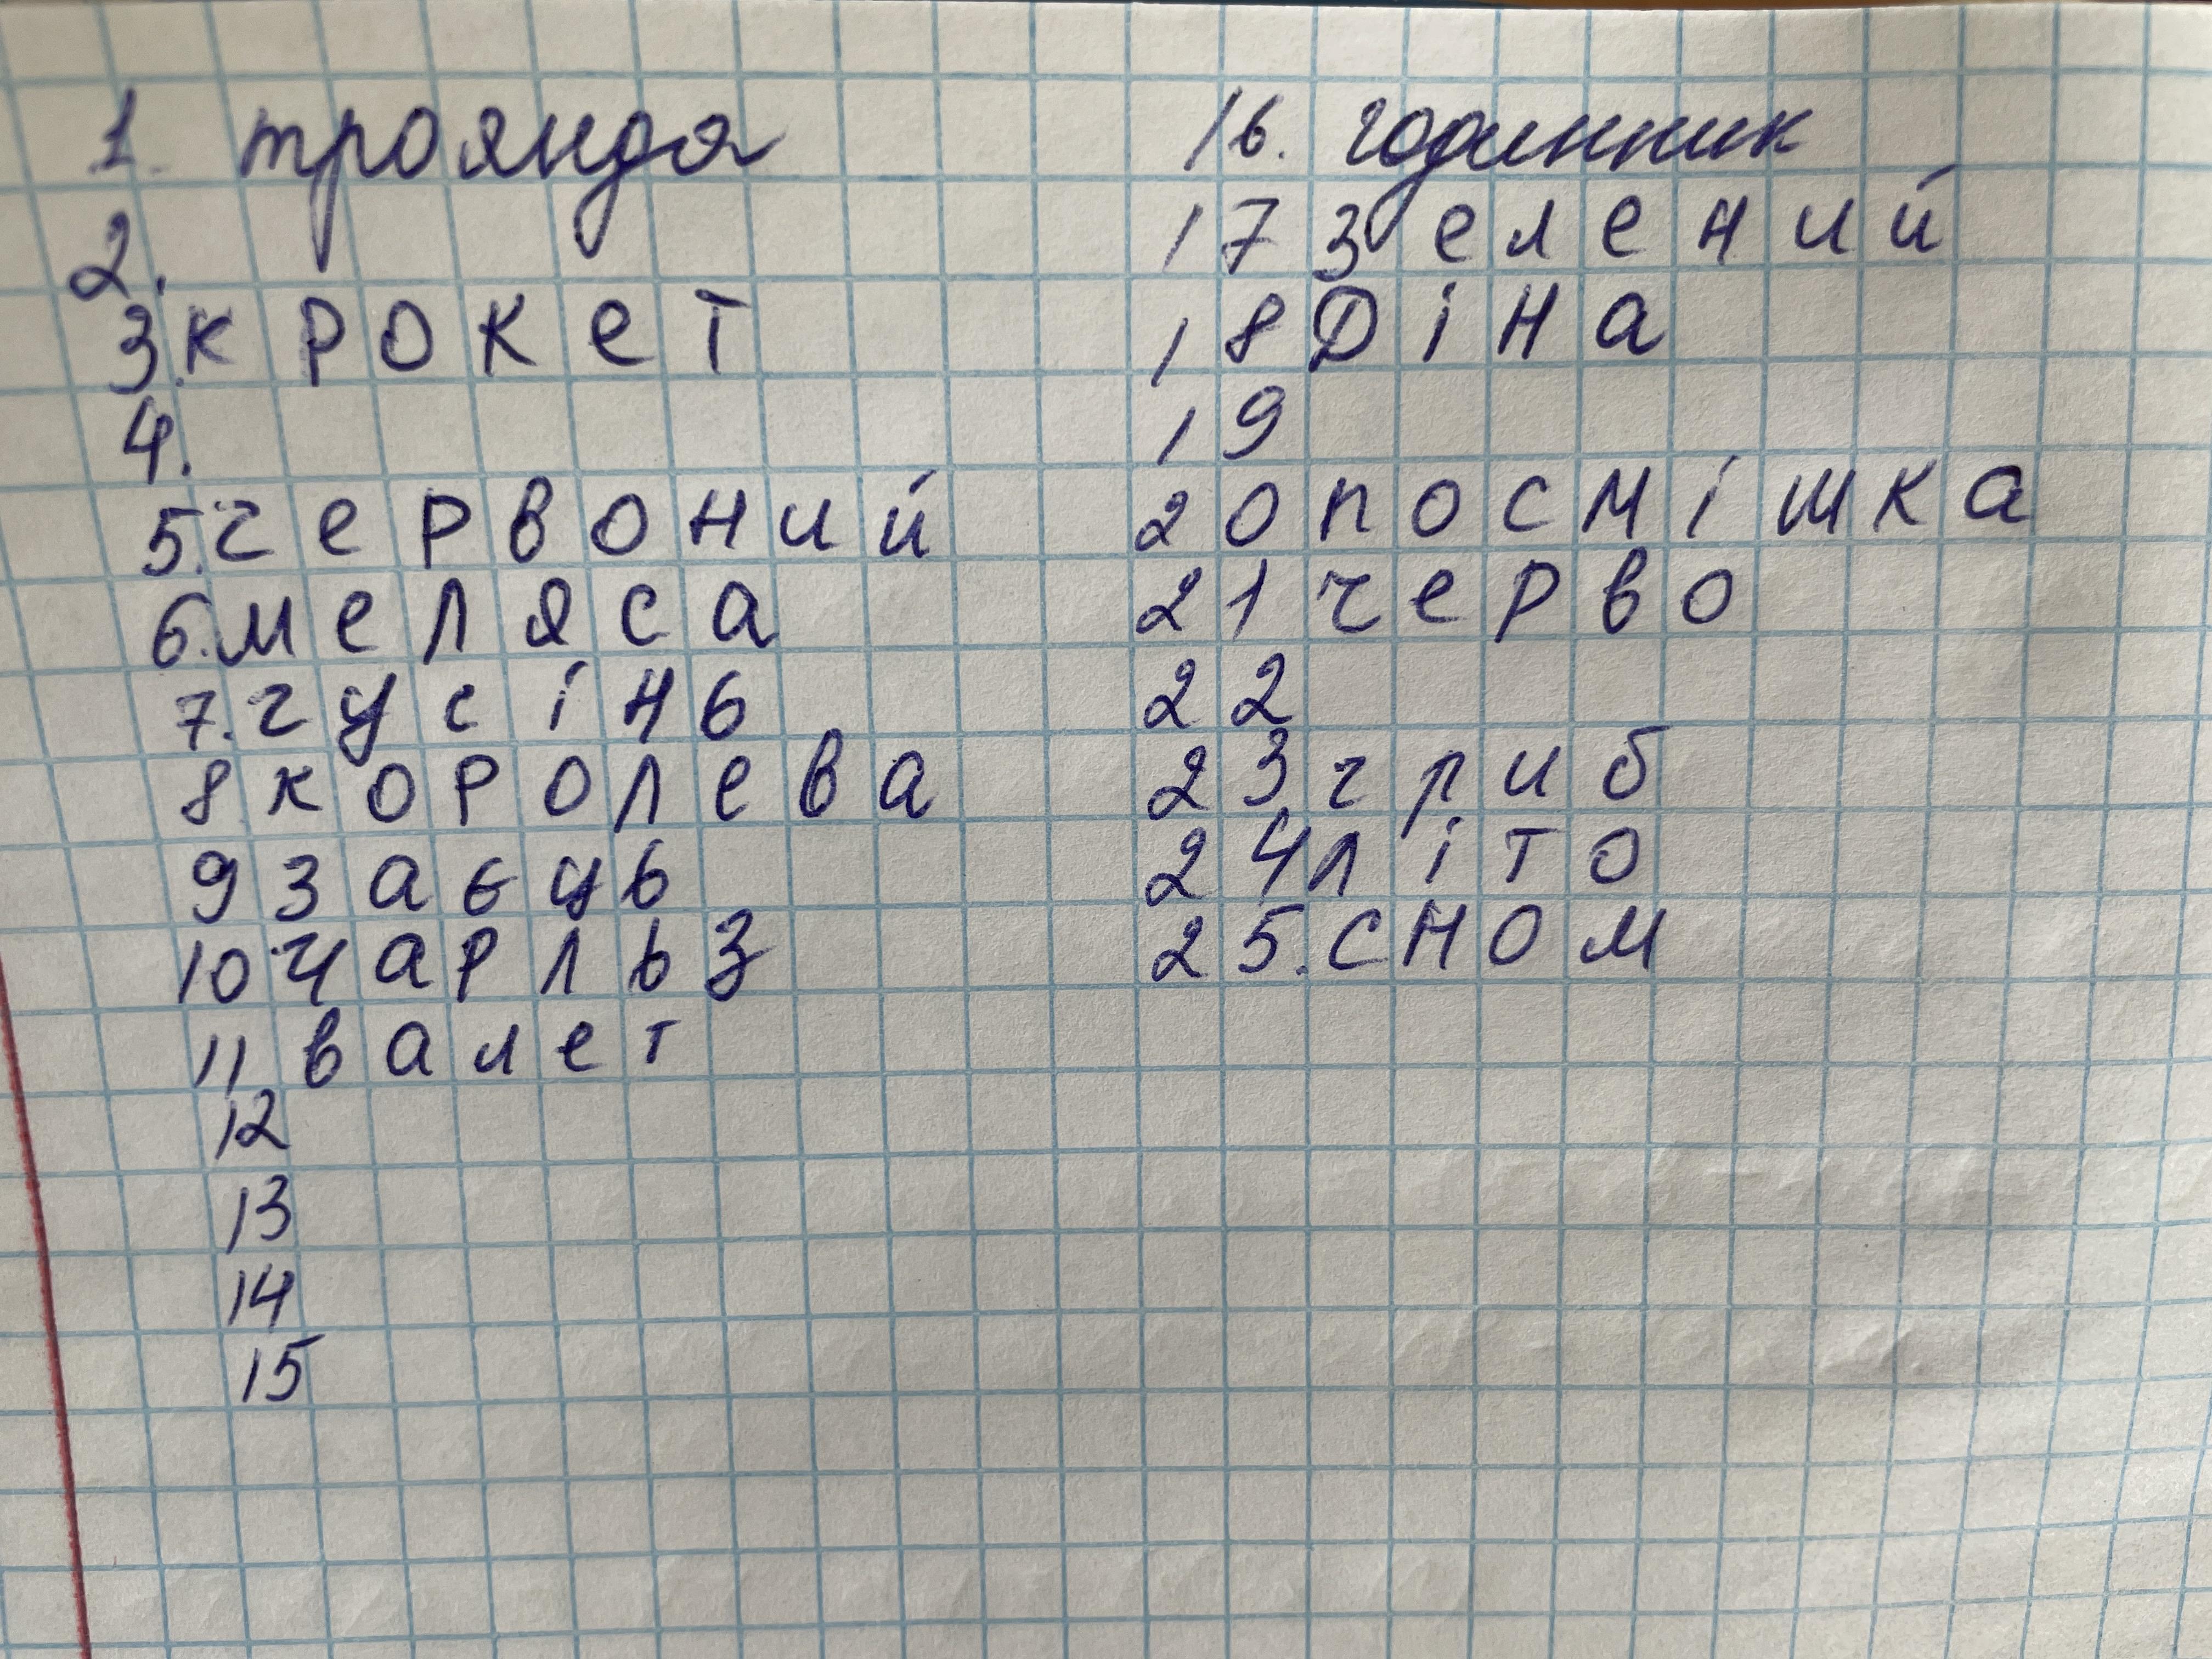 1. троянда
2.
3. крокет
4.
5. червоний
6. меляса
7. гусінь
8 королева
9 заєць
10 Чарльз
11 валет
12
13
14
15
16. годинник
17 зелений
18 Діна
19
20 посмішка
21 черво
22
23 гриб
24 літо
25. сном